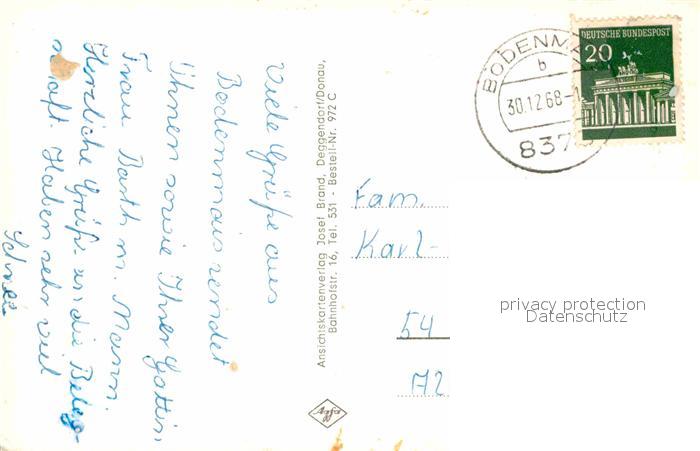 Viele Grüße aus
Bodenmais sendet
Ihnen sowie Ihrer Gattin
Frau Barth m. Mann.
Herzliche Grüße an die Beleg-
schaft. Haben sehr viel
Schnee
Ansichtskartenverlag Josef Brand, Deggendorf/Donau,
Bahnhofstr. 16, Tel. 531 - Bestell-Nr. 972 C
Agfa
BODENMA
b
30.12.68-1
837
DEUTSCHE BUNDESPOST
20
Fam.
Karl-
54
privacy protection
Datenschutz